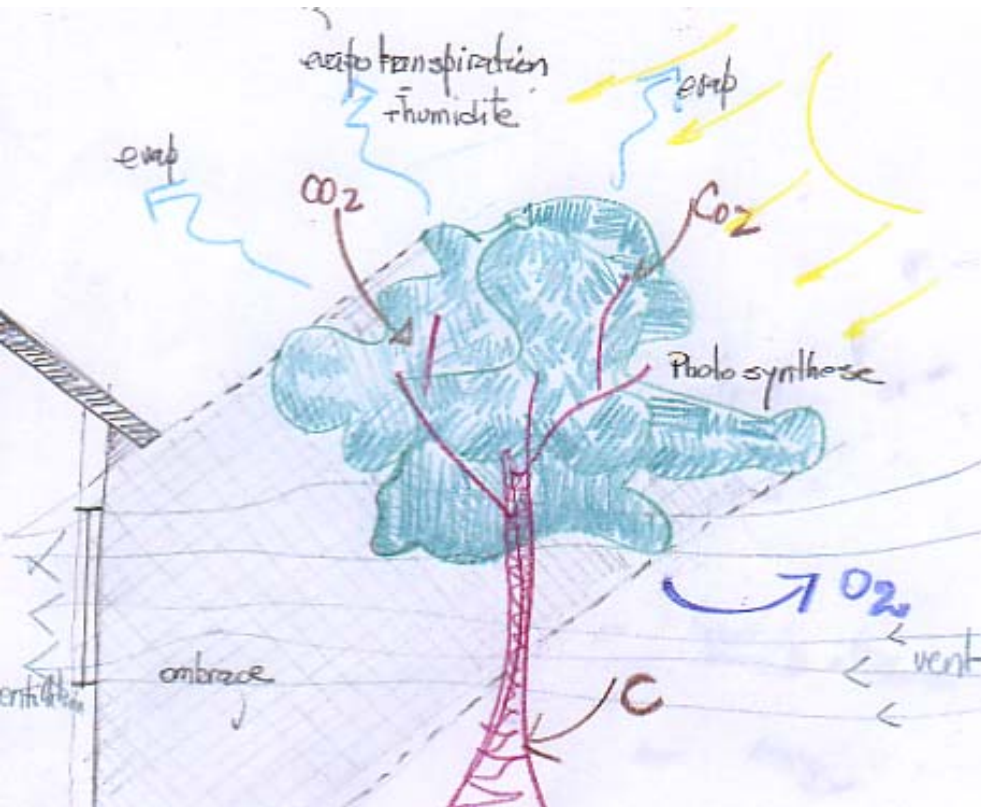 evapotranspiration
+humidite
evap
evap
CO2
CO2
Photosynthese
O2
vent
ombrage
entilation
C